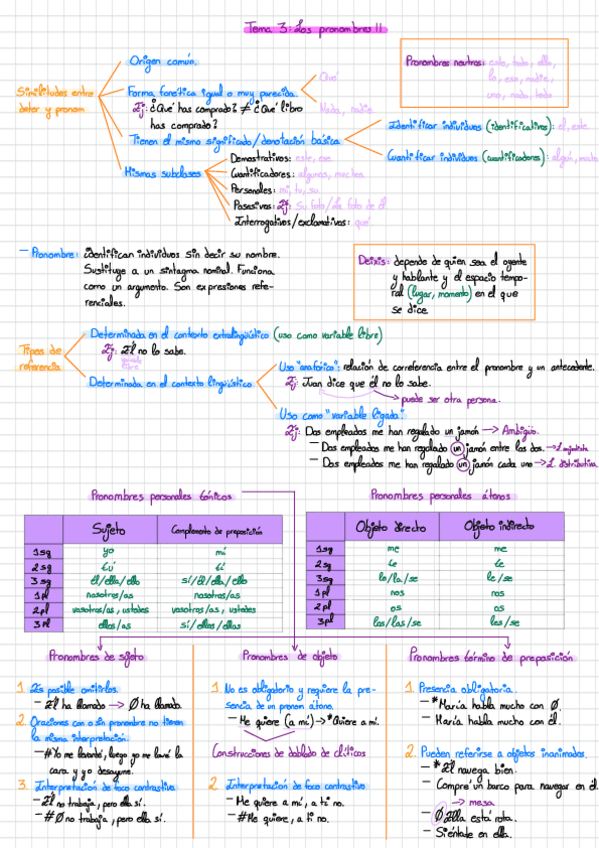 Tema 3: Los pronombres II
Similitudes entre
deter y pronom
Origen común.
Forma fonética igual o muy parecida.
Qué
Nada, nadie
Ej: ¿Qué has comprado? ≠ ¿Qué libro
has comprado?
Tienen el mismo significado/denotación básica
Identificar individuos (identificativos): él, este
Cuantificar individuos (cuantificadores): algún, mucho
Mismas subclases
Demostrativos: este, ese.
Cuantificadores: algunos, muchos.
Personales: mi, tu, su.
Posesivos: Ej: Su foto/La foto de él
Interrogativos/exclamativos: qué
Pronombres neutros: esto, todo, ello,
lo, eso, nadie,
uno, nada, todo
— Pronombre: identifican individuos sin decir su nombre.
Sustituye a un sintagma nominal. Funciona
como un argumento. Son expresiones refe-
renciales.
Deixis: depende de quien sea el agente
y hablante y el espacio tempo-
ral (lugar, momento) en el que
se dice.
Tipos de
referencia
Determinada en el contexto extralingüístico (uso como variable libre)
Ej: Él no lo sabe.
variable
libre
Determinada en el contexto lingüístico
Uso "anafórico": relación de correferencia entre el pronombre y un antecedente.
Ej: Juan dice que él no lo sabe.
puede ser otra persona.
Uso como "variable ligada".
Ej: Dos empleados me han regalado un jamón → Ambigüo.
— Dos empleados me han regalado un jamón entre los dos. → L. conjuntista
— Dos empleados me han regalado un jamón cada uno → L. distributiva.
Pronombres personales tónicos
Sujeto Complemento de preposición
1sg yo mí
2sg tú tí
3sg él/ella/ello sí/él/ella/ello
1pl nosotros/as nosotros/as
2pl vosotros/as, ustedes vosotros/as, ustedes
3pl ellos/as sí/ellos/ellas
Pronombres personales átonos
Objeto directo Objeto indirecto
1sg me me
2sg te te
3sg lo/la/se le/se
1pl nos nos
2pl os os
3pl los/las/se les/se
Pronombres de sujeto
1. Es posible omitirlos.
— Él ha llamado → Ø ha llamado.
2. Oraciones con o sin pronombre no tienen
la misma interpretación.
— #Yo me levanté, luego yo me lavé la
cara y yo desayuné.
3. Interpretación de foco contrastivo
— Él no trabaja, pero ella sí.
— #Ø no trabaja, pero ella sí.
Pronombres de objeto
1. No es obligatorio y requiere la pre-
sencia de un pronom átono.
— Me quiere (a mí) → *Quiere a mí.
Construcciones de doblado de clíticos
2. Interpretación de foco contrastivo
— Me quiere a mí, a ti no.
— #Me quiere, a ti no.
Pronombres término de preposición
1. Presencia obligatoria.
— *María habla mucho con Ø.
— María habla mucho con él.
2. Pueden referirse a objetos inanimados.
— *Él navega bien.
— Compré un barco para navegar en él.
→ mesa
— Ø/Ella está rota.
— Siéntate en ella.